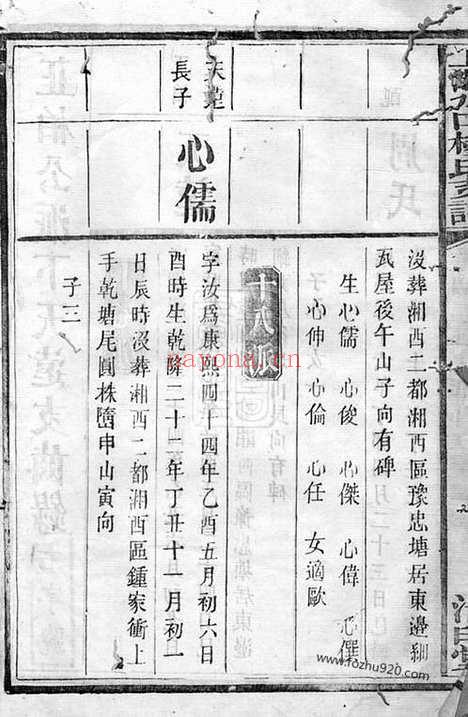 沒葬湘西二都湘西區豫忠塘居東邊
瓦屋後午山子向有碑
生心儒 心俊 心傑 心偉
心伸 心倫 心任 女適歐
十八派
天達
長子
心儒
字汝爲康熙四十四年乙酉五月初六日
酉時生乾隆二十二年丁丑十一月初一
日辰時沒葬湘西二都湘西區鍾家衝上
手乾塘尾圓株墮申山寅向
子三
nayona.cn
www.fozhu920.com